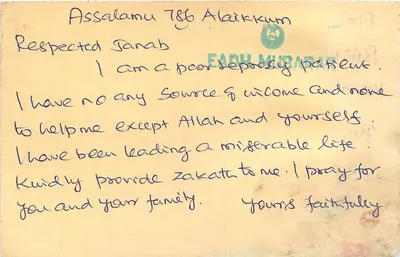 Assalamu 786 Alaikkum
Respected Janab
EADH MUBARAK
I am a poor leprosy patient.
I have no any source of income and none
to help me except Allah and yourself.
I have been leading a miserable life.
Kindly provide zakath to me. I pray for
you and your family. Yours faithfully